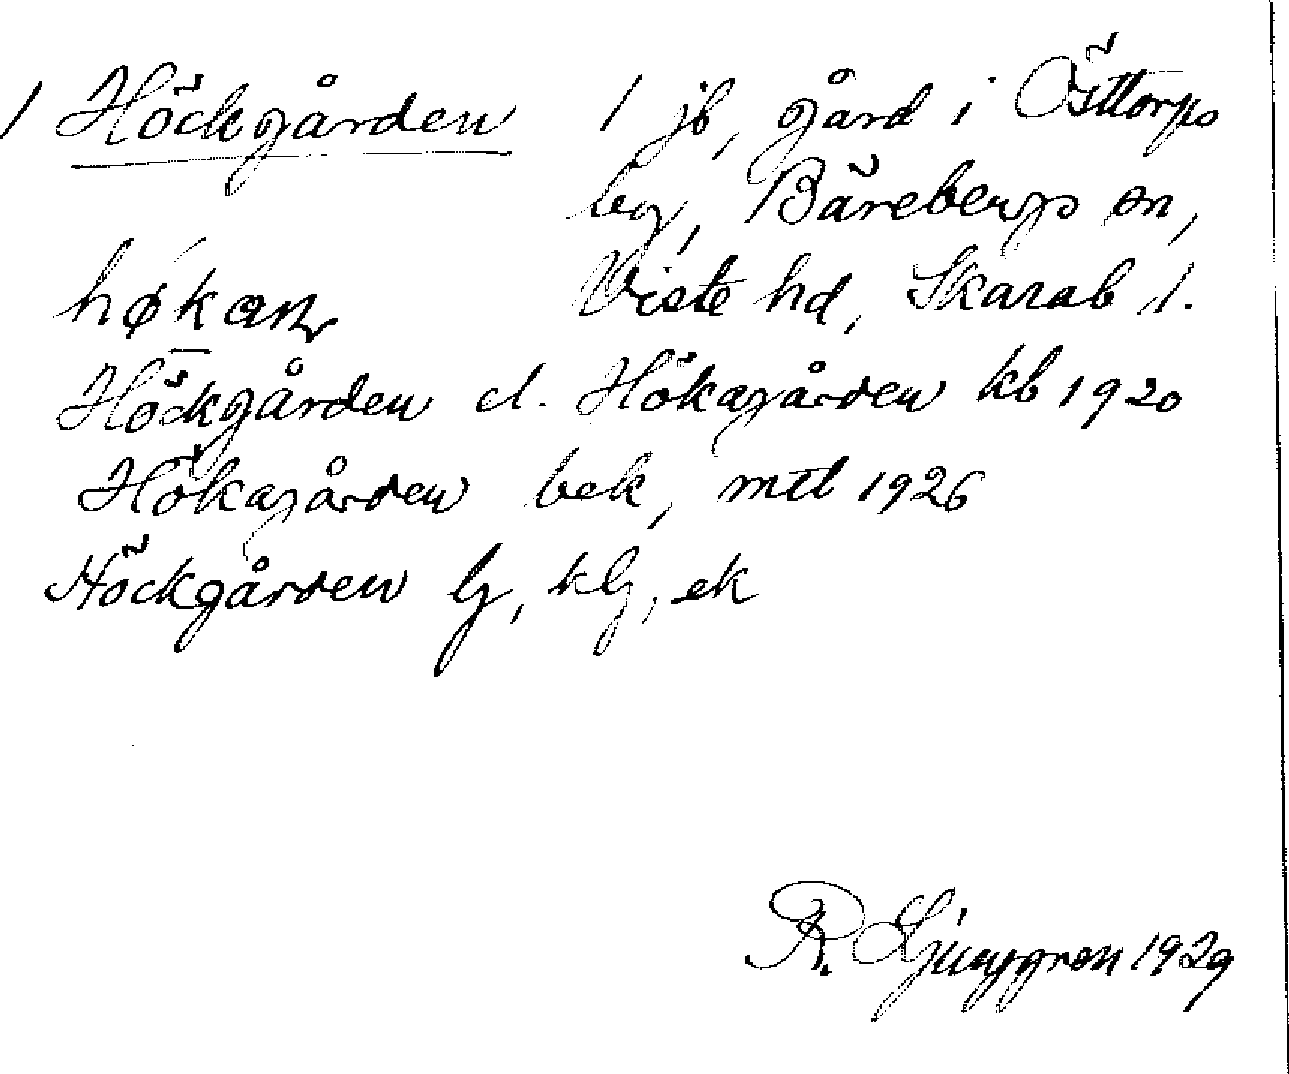 1 Höckgården 1 jb, gård i Öttorps
by, Bärebergs sn,
høkan Viste hd, Skarab l.
Höckgården el. Hökagården kb 1920
Hökagården bek, mtl 1926
Höckgården lj, klj, ek
R. Ljunggren 1929